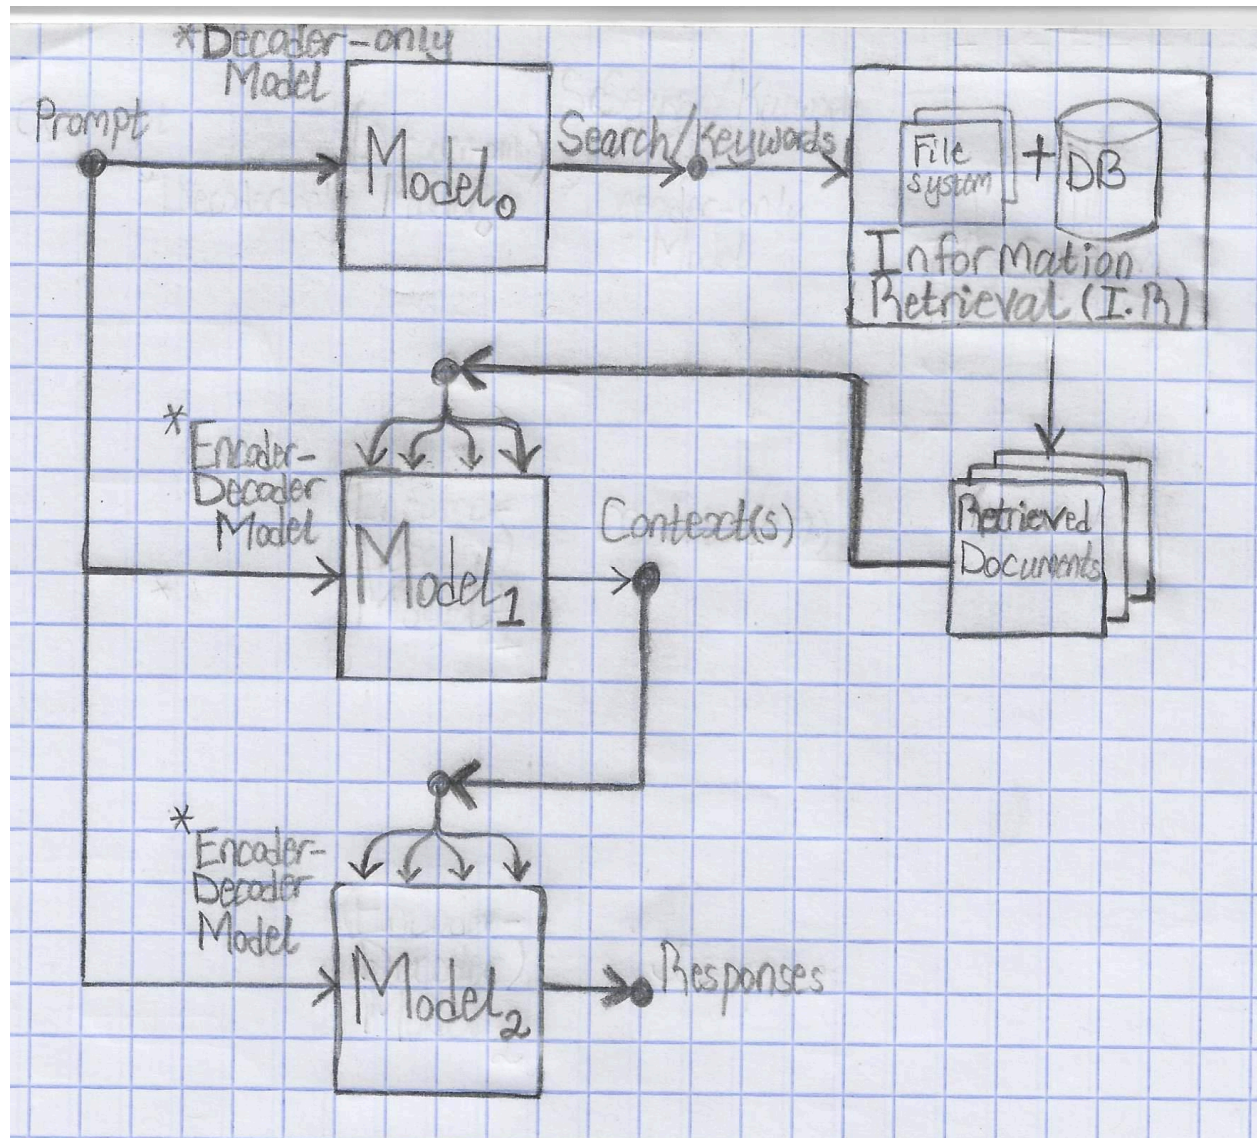 *Decoder-only
Model
Prompt
Model₀
Search/Keywords
File
system
+
DB
Information
Retrieval (I.R)
*
Encoder-
Decoder
Model
Model₁
Context(s)
Retrieved
Documents
*
Encoder-
Decoder
Model
Model₂
Responses